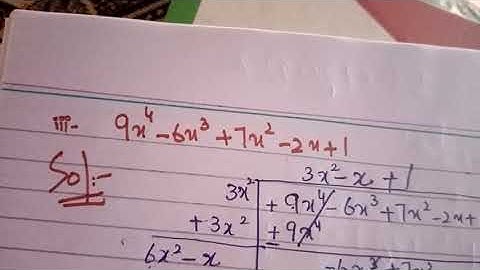 iii- 9x⁴ - 6x³ + 7x² - 2x + 1
Sol:-
3x² - x + 1
3x² + 9x⁴ - 6x³ + 7x² - 2x +
+ 3x² + 9x⁴
6x² - x - 6x³ + 7x²